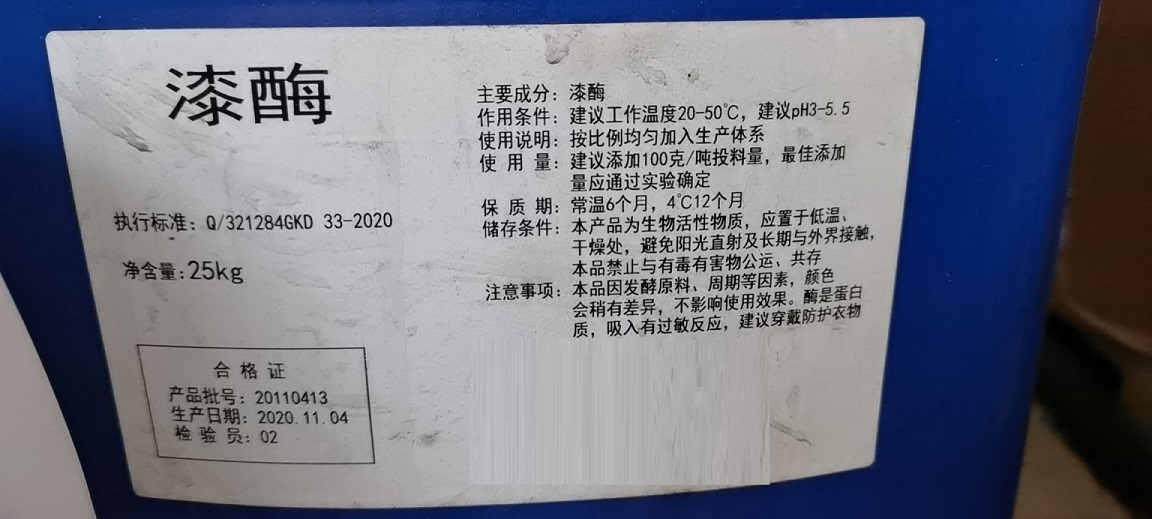 漆酶
执行标准：Q/321284GKD 33-2020
净含量：25kg
合格证
产品批号：20110413
生产日期：2020.11.04
检验员：02
主要成分：漆酶
作用条件：建议工作温度20-50℃，建议pH3-5.5
使用说明：按比例均匀加入生产体系
使用量：建议添加100克/吨投料量，最佳添加
量应通过实验确定
保质期：常温6个月，4℃12个月
储存条件：本产品为生物活性物质，应置于低温、
干燥处，避免阳光直射及长期与外界接触，
本品禁止与有毒有害物公运、共存
注意事项：本品因发酵原料、周期等因素，颜色
会稍有差异，不影响使用效果。酶是蛋白
质，吸入有过敏反应，建议穿戴防护衣物